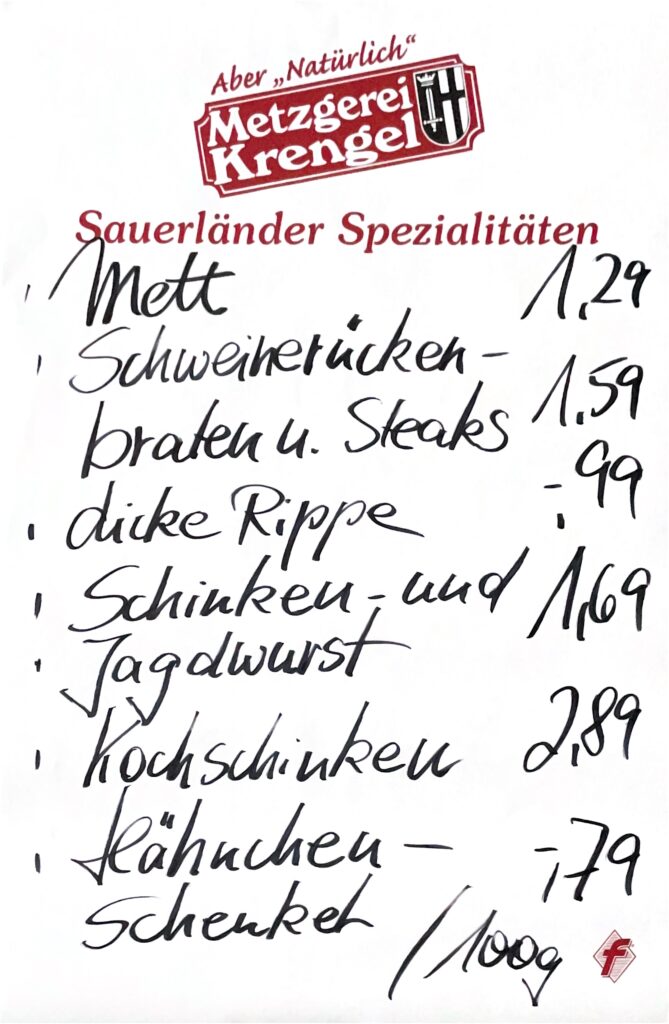 Aber „Natürlich“
Metzgerei
Krengel
Sauerländer Spezialitäten
Mett 1,29
Schweinerücken-
braten u. Steaks 1,59
dicke Rippe -,99
Schinken- und 1,69
Jagdwurst
Kochschinken 2,89
Hähnchen- -,79
Schenkel /100g
f